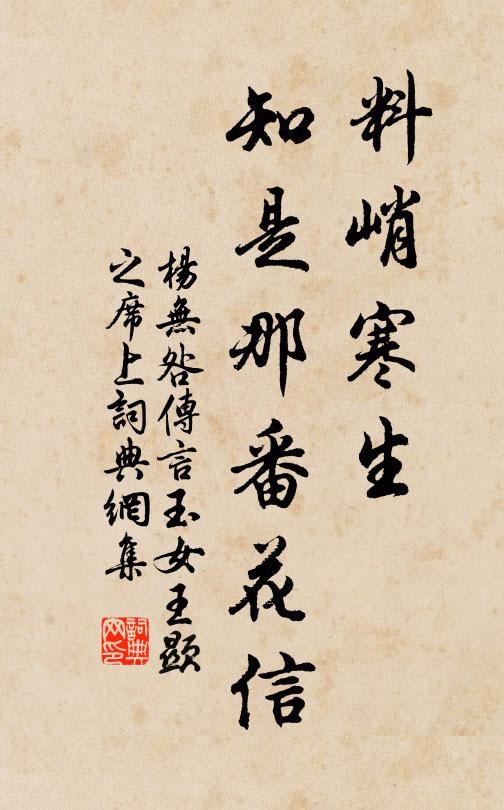 料峭寒生
知是那番花信
楊無咎傳言玉女王顯
之席上詞典網集
詞典網印